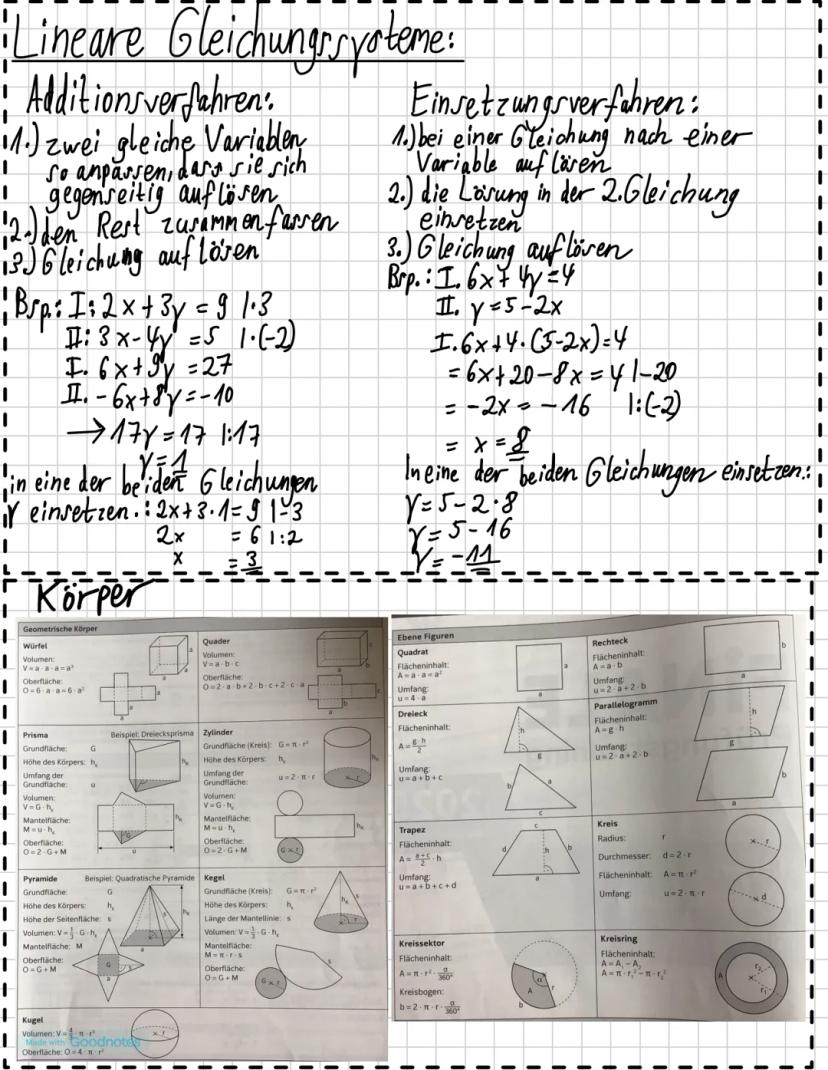 Lineare Gleichungssysteme:
Additionsverfahren:
1.) zwei gleiche Variablen
so anpassen, dass sie sich
gegenseitig auflösen
2.) den Rest zusammenfassen
3.) Gleichung auflösen
Bsp.: I: 2x + 3y = 9 |·3
II: 3x - 4y = 5 |·(-2)
I. 6x + 9y = 27
II. -6x + 8y = -10
→ 17y = 17 |:17
y = 1
in eine der beiden Gleichungen
y einsetzen.: 2x + 3·1 = 9 |-3
2x = 6 |:2
x = 3
Einsetzungsverfahren:
1.) bei einer Gleichung nach einer
Variable auflösen
2.) die Lösung in der 2. Gleichung
einsetzen
3.) Gleichung auflösen
Bsp.: I. 6x + 4y = 4
II. y = 5 - 2x
I. 6x + 4·(5-2x) = 4
= 6x + 20 - 8x = 4 |-20
= -2x = -16 |:(-2)
= x = 8
In eine der beiden Gleichungen einsetzen.:
y = 5 - 2·8
y = 5 - 16
y = -11
Körper
Geometrische Körper
Würfel
Volumen:
V = a · a · a = a³
Oberfläche:
O = 6 · a · a = 6 · a²
a
a
a
a
a
Quader
Volumen:
V = a · b · c
Oberfläche:
O = 2 · a · b + 2 · b · c + 2 · c · a
c
b
a
c
b
a
Prisma Beispiel: Dreiecksprisma
Grundfläche: G
Höhe des Körpers: hₖ
Umfang der
Grundfläche: u
Volumen:
V = G · hₖ
Mantelfläche:
M = u · hₖ
Oberfläche:
O = 2 · G + M
hₖ
G
hₖ
G
u
Zylinder
Grundfläche (Kreis): G = π · r²
Höhe des Körpers: hₖ
Umfang der
Grundfläche: u = 2 · π · r
Volumen:
V = G · hₖ
Mantelfläche:
M = u · hₖ
Oberfläche:
O = 2 · G + M
hₖ
r
hₖ
G r
Pyramide Beispiel: Quadratische Pyramide
Grundfläche: G
Höhe des Körpers: hₖ
Höhe der Seitenfläche: s
Volumen: V = 1/3 · G · hₖ
Mantelfläche: M
Oberfläche:
O = G + M
hₖ
s
a
G
s
Kegel
Grundfläche (Kreis): G = π · r²
Höhe des Körpers: hₖ
Länge der Mantellinie: s
Volumen: V = 1/3 · G · hₖ
Mantelfläche:
M = π · r · s
Oberfläche:
O = G + M
hₖ
s
r
s
G r
Kugel
Volumen: V = 4/3 · π · r³
Made with Goodnotes
Oberfläche: O = 4 · π · r²
r
Ebene Figuren
Quadrat
Flächeninhalt:
A = a · a = a²
Umfang:
u = 4 · a
a
a
Rechteck
Flächeninhalt:
A = a · b
Umfang:
u = 2 · a + 2 · b
b
a
Dreieck
Flächeninhalt:
A = g · h / 2
Umfang:
u = a + b + c
h
g
b
a
c
Parallelogramm
Flächeninhalt:
A = g · h
Umfang:
u = 2 · a + 2 · b
h
g
b
a
Trapez
Flächeninhalt:
A = a + c / 2 · h
Umfang:
u = a + b + c + d
c
d
h
b
a
Kreis
Radius: r
Durchmesser: d = 2 · r
Flächeninhalt: A = π · r²
Umfang: u = 2 · π · r
r
d
Kreissektor
Flächeninhalt:
A = π · r² · α/360°
Kreisbogen:
b = 2 · π · r · α/360°
α
A
r
b
Kreisring
Flächeninhalt:
A = A₁ - A₂
A = π · r₁² - π · r₂²
A
r₂
r₁